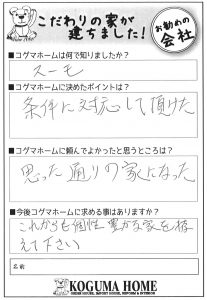 こだわりの家が
建ちました!
お勧めの
会社
■コグマホームは何で知りましたか?
スーモ
■コグマホームに決めたポイントは?
条件に対応して頂けた
■コグマホームに頼んでよかったと思うところは?
思った通りの家になった
■今後コグマホームに求める事はありますか?
これからも個性豊かな家を揃
えて下さい
名前
KOGUMA HOME
ORDER HOUSE, IMPORT HOUSE, REFORM & INTERIOR